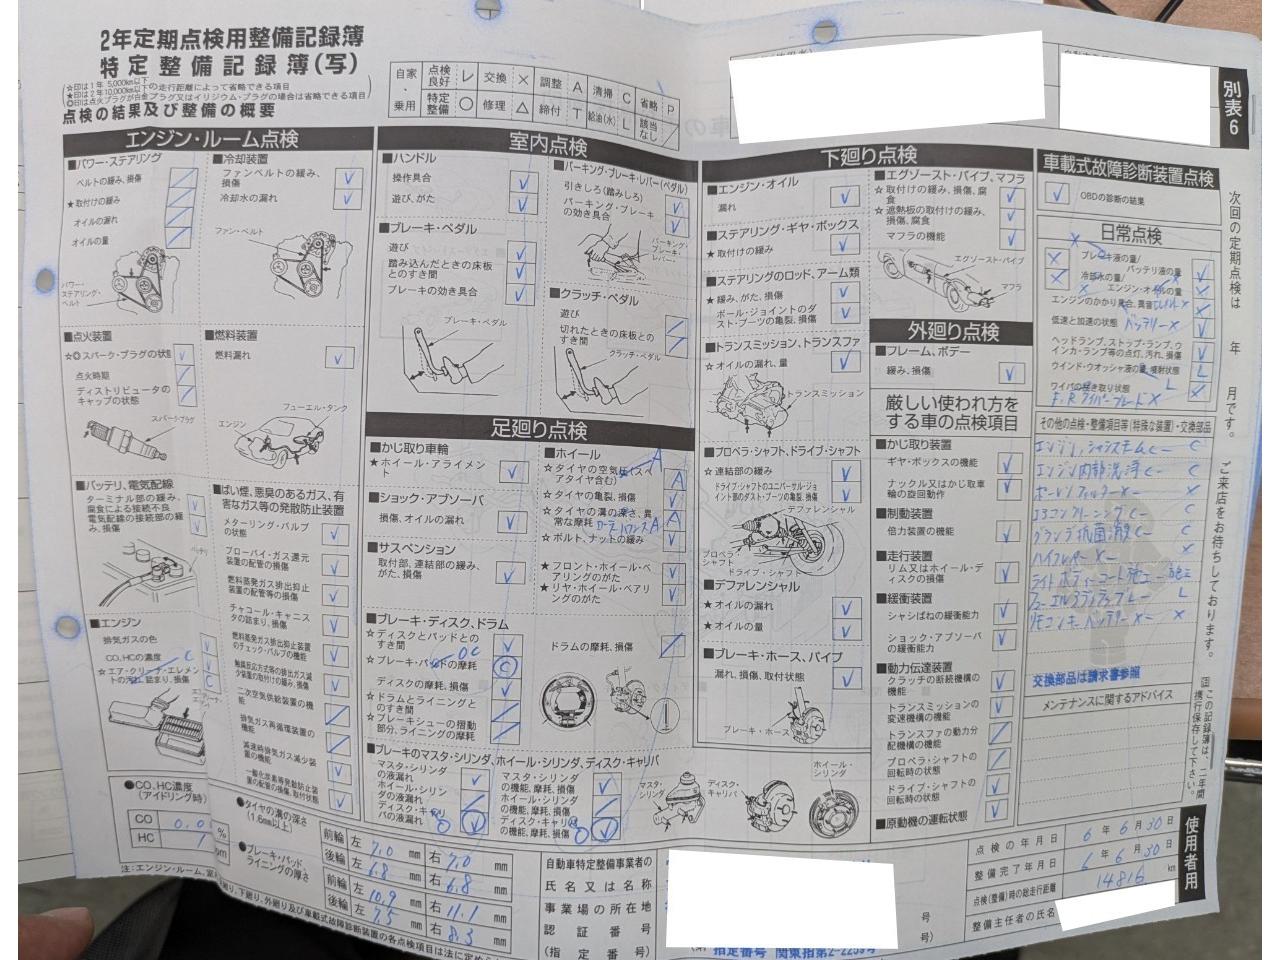 2年定期点検用整備記録簿
特定整備記録簿(写)
☆印は1年 5,000km以下
★印は2年10,000km以下の走行距離によって省略できる項目
◎印は点火プラグが白金プラグ又はイリジウム・プラグの場合は省略できる項目
点検の結果及び整備の概要
自家・乗用
点検良好 レ 交換 × 調整 A 清掃 C 省略 P
特定整備 ○ 修理 △ 締付 T 給油(水) L 該当なし /
別表6
エンジン・ルーム点検
■パワー・ステアリング
ベルトの緩み、損傷
★取付けの緩み
オイルの漏れ
オイルの量
パワー・ステアリング・ベルト
■冷却装置
ファンベルトの緩み、損傷
冷却水の漏れ
ファン・ベルト
■点火装置
☆◎スパーク・プラグの状態
点火時期
ディストリビュータのキャップの状態
スパーク・プラグ
■燃料装置
燃料漏れ
フューエル・タンク
エンジン
■バッテリ、電気配線
ターミナル部の緩み、腐食による接続不良
電気配線の接続部の緩み、損傷
バッテリ
■エンジン
排気ガスの色
CO,HCの濃度
☆エア・クリーナ・エレメントの汚れ、詰まり、損傷
■ばい煙、悪臭のあるガス、有害なガス等の発散防止装置
メターリング・バルブの状態
ブローバイ・ガス還元装置の配管の損傷
燃料蒸発ガス排出抑止装置の配管等の損傷
チャコール・キャニスタの詰まり、損傷
燃料蒸発ガス排出抑止装置のチェック・バルブの機能
触媒反応方式等の排出ガス減少装置の取付けの緩み、損傷
二次空気供給装置の機能
排気ガス再循環装置の機能
減速時排気ガス減少装置の機能
一酸化炭素等発散防止装置の配管の損傷、取付状態
室内点検
■ハンドル
操作具合
遊び、がた
■ブレーキ・ペダル
遊び
踏み込んだときの床板とのすき間
ブレーキの効き具合
ブレーキ・ペダル
■パーキング・ブレーキ・レバー(ペダル)
引きしろ(踏みしろ)
パーキング・ブレーキの効き具合
パーキング・ブレーキ・レバー
■クラッチ・ペダル
遊び
切れたときの床板とのすき間
クラッチ・ペダル
足廻り点検
■かじ取り車輪
★ホイール・アライメント
■ショック・アブソーバ
損傷、オイルの漏れ
■サスペンション
取付部、連結部の緩み、がた、損傷
■ホイール
☆タイヤの空気圧(スペアタイヤ含む)
☆タイヤの亀裂、損傷
☆タイヤの溝の深さ、異常な摩耗
☆ボルト、ナットの緩み
★フロント・ホイール・ベアリングのがた
★リヤ・ホイール・ベアリングのがた
■ブレーキ・ディスク、ドラム
☆ディスクとパッドとのすき間
☆ブレーキ・パッドの摩耗
ディスクの摩耗、損傷
☆ドラムとライニングとのすき間
☆ブレーキシューの摺動部分、ライニングの摩耗
ドラムの摩耗、損傷
■ブレーキのマスタ・シリンダ、ホイール・シリンダ、ディスク・キャリパ
マスタ・シリンダの液漏れ
ホイール・シリンダの液漏れ
ディスク・キャリパの液漏れ
マスタ・シリンダの機能、摩耗、損傷
ホイール・シリンダの機能、摩耗、損傷
ディスク・キャリパの機能、摩耗、損傷
マスタ・シリンダ
ディスク・キャリパ
ホイール・シリンダ
下廻り点検
■エンジン・オイル
漏れ
■ステアリング・ギヤ・ボックス
★取付けの緩み
■ステアリングのロッド、アーム類
★緩み、がた、損傷
ボール・ジョイントのダスト・ブーツの亀裂、損傷
■トランスミッション、トランスファ
☆オイルの漏れ、量
トランスミッション
■プロペラ・シャフト、ドライブ・シャフト
☆連結部の緩み
ドライブ・シャフトのユニバーサル・ジョイント部のダスト・ブーツの亀裂、損傷
デファレンシャル
プロペラシャフト
ドライブ・シャフト
■デファレンシャル
★オイルの漏れ
★オイルの量
■ブレーキ・ホース、パイプ
漏れ、損傷、取付状態
ブレーキ・ホース
■エグゾースト・パイプ、マフラ
☆取付けの緩み、損傷、腐食
☆遮熱板の取付けの緩み、損傷、腐食
マフラの機能
エグゾースト・パイプ
マフラ
外廻り点検
■フレーム、ボデー
緩み、損傷
厳しい使われ方をする車の点検項目
■かじ取り装置
ギヤ・ボックスの機能
ナックル又はかじ取車輪の旋回動作
■制動装置
倍力装置の機能
■走行装置
リム又はホイール・ディスクの損傷
■緩衝装置
シャシばねの緩衝能力
ショック・アブソーバの緩衝能力
■動力伝達装置
クラッチの断続機構の機能
トランスミッションの変速機構の機能
トランスファの動力分配機構の機能
プロペラ・シャフトの回転時の状態
ドライブ・シャフトの回転時の状態
■原動機の運転状態
車載式故障診断装置点検
OBDの診断の結果
日常点検
ブレーキ液の量
バッテリ液の量
冷却水の量
エンジン・オイルの量
エンジンのかかり具合、異音
低速と加速の状態 バッテリーX
ヘッドランプ、ストップ・ランプ、ウインカ・ランプ等の点灯、汚れ、損傷
ウインド・ウオッシャ液の量、噴射状態
ワイパの拭き取り状態
F,Rワイパーブレード×
その他の点検・整備項目等(特殊な装置)・交換部品
エンジン,シャシスチームC- C
エンジン内部洗浄C- C
エアコンクリーニングC- C
グランプ抗菌消臭C- C
ライトボディーコート施工- 施工
リモコンキーバッテリー×- ×
交換部品は請求書参照
メンテナンスに関するアドバイス
次回の定期点検は 年 月です。ご来店をお待ちしております。
この記録簿は、二年間携行保存して下さい。
使用者用
●CO,HC濃度(アイドリング時)
CO 0.0 %
HC 1 ppm
●タイヤの溝の深さ(1.6mm以上)
前輪 左 7.0 mm 右 7.0 mm
後輪 左 6.8 mm 右 6.8 mm
●ブレーキ・パッド、ライニングの厚さ
前輪 左 10.9 mm 右 11.1 mm
後輪 左 7.5 mm 右 8.3 mm
自動車特定整備事業者の
氏名又は名称
事業場の所在地
認証番号 号
(指定番号) 号)
指定番号 関東指第2-2259号
点検の年月日 6年6月30日
整備完了年月日 6年6月30日
点検(整備)時の総走行距離 14816 km
整備主任者の氏名